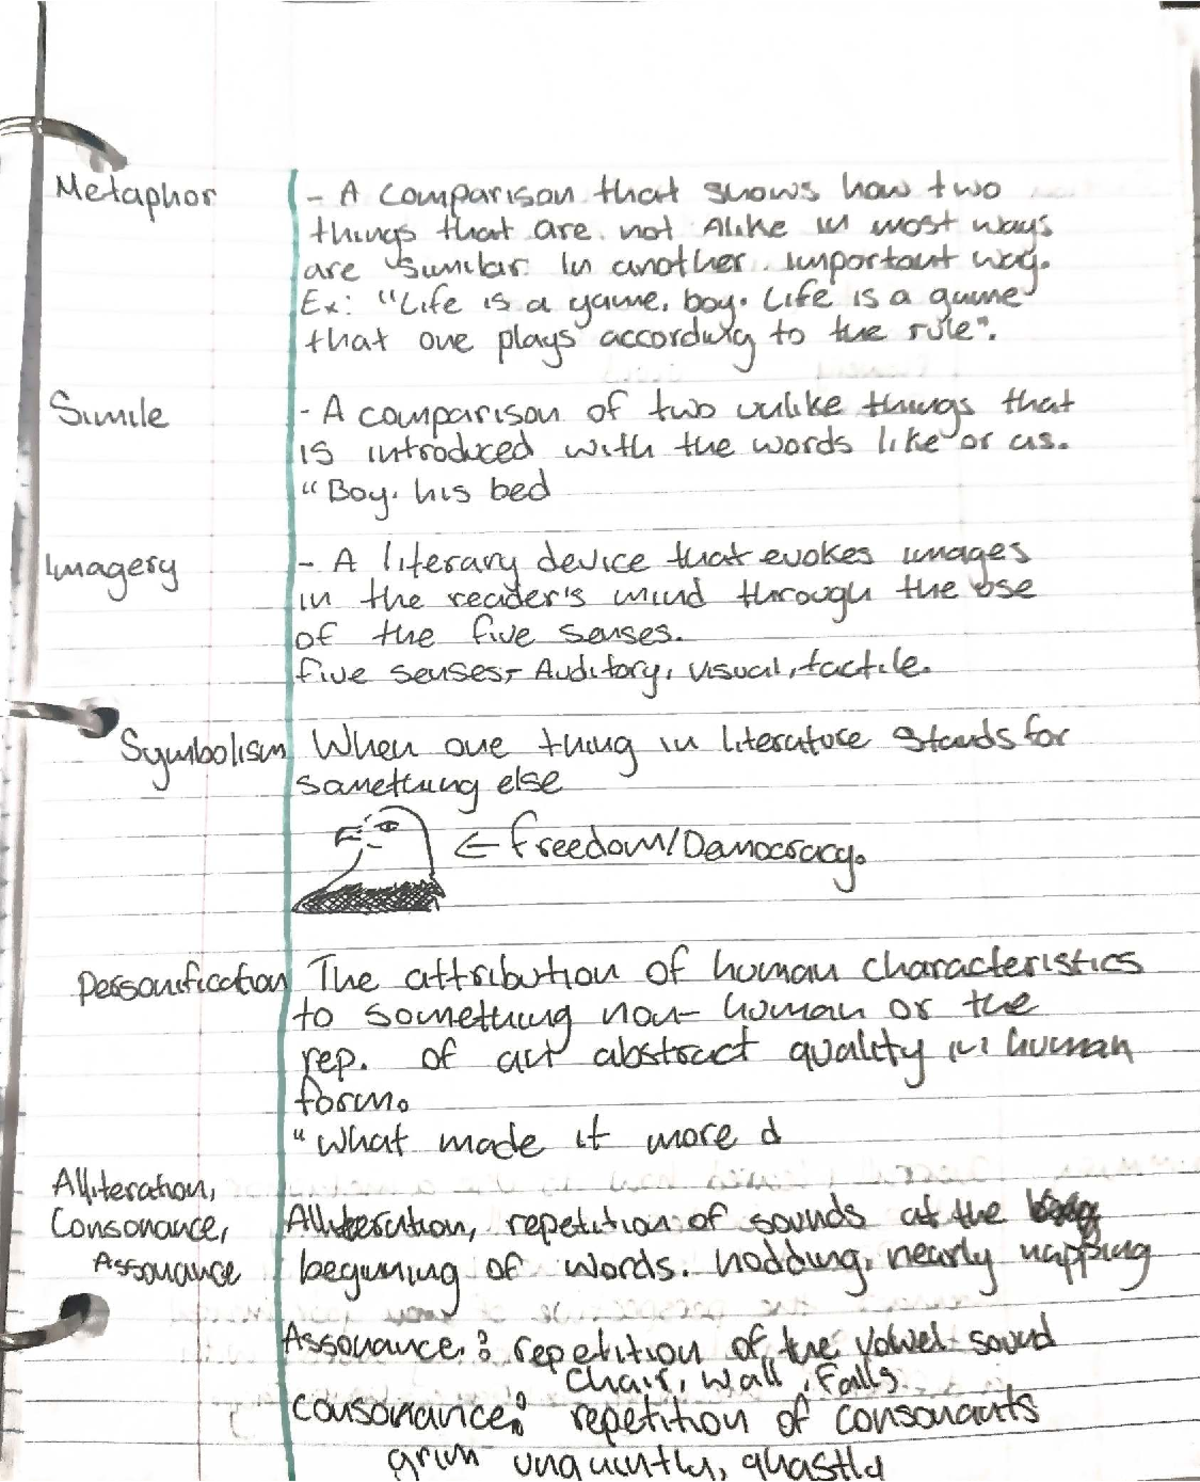 Metaphor - A comparison that shows how two
things that are not Alike in most ways
are similar in another important way.
Ex: "Life is a game, boy. Life is a game
that one plays according to the rule".
Simile - A comparison of two unlike things that
is introduced with the words like or as.
"Boy, his bed
Imagery - A literary device that evokes images
in the reader's mind through the use
of the five senses.
five senses,- Auditory, visual, tactile.
Symbolism When one thing in literature stands for
something else
← freedom/Democracy.
Personification The attribution of human characteristics
to something non-human or the
rep. of an abstract quality in human
form.
"What made it more d
Alliteration,
Consonance, Alliteration, repetition of sounds at the
Assonance beginning of words. nodding, nearly napping
Assonance: repetition of the vowel sound
chair, wall, falls
consonance: repetition of consonants
grim ghastly